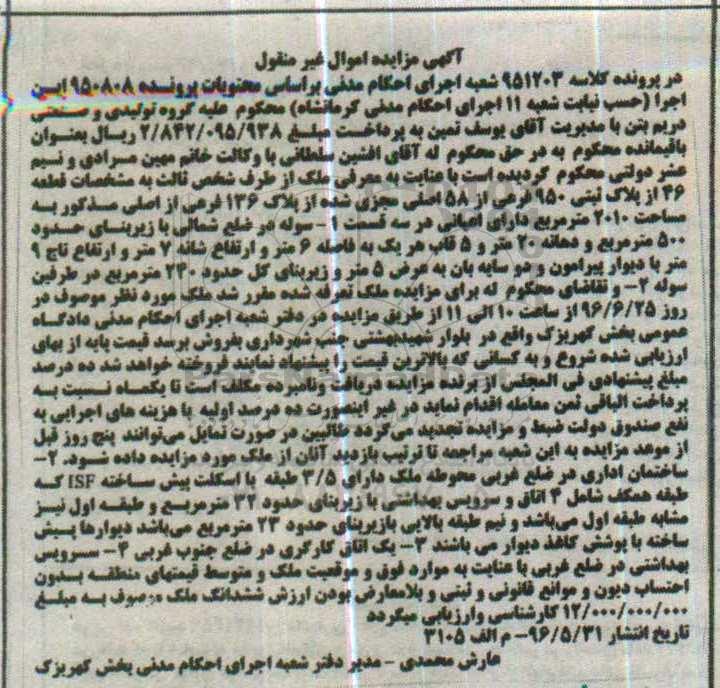 آگهی مزایده اموال غیر منقول
در پرونده کلاسه ۹۵۱۲۰۳ شعبه اجرای احکام مدنی براساس محتویات پرونده ۹۵۰۸۰۸ این
اجرا (حسب نیابت شعبه ۱۱ اجرای احکام مدنی کرمانشاه) محکوم علیه گروه تولیدی و صنعتی
دریم بتن با مدیریت آقای یوسف ثمین به پرداخت مبلغ ۲/۸۴۲/۰۹۵/۹۳۸ ریال بعنوان
باقیمانده محکوم به در حق محکوم له آقای افشین سلطانی با وکالت خانم مهین مرادی و نیم
عشر دولتی محکوم گردیده است با عنایت به معرفی ملک از طرف شخص ثالث به مشخصات قطعه
۴۶ از پلاک ثبتی ۹۵۰ فرعی از ۵۸ اصلی مجزی شده از پلاک ۱۳۶ فرعی از اصلی مذکور به
مساحت ۲۰۱۰ مترمربع دارای اعیانی در سه قسمت ۱- سوله در ضلع شمالی با زیربنای حدود
۵۰۰ مترمربع و دهانه ۲۰ متر و ۵ قاب هر یک به فاصله ۶ متر و ارتفاع شانه ۷ متر و ارتفاع تاج ۹
متر با دیوار پیرامون و دو سایه بان به عرض ۵ متر و زیربنای کل حدود ۲۴۰ مترمربع در طرفین
سوله ۲- و تقاضای محکوم له برای مزایده ملک تعرفه شده مقرر شد ملک مورد نظر موصوف در
روز ۹۶/۶/۲۵ از ساعت ۱۰ الی ۱۱ از طریق مزایده در دفتر شعبه اجرای احکام مدنی دادگاه
عمومی بخش کهریزک واقع در بلوار شهیدبهشتی جنب شهرداری بفروش برسد قیمت پایه از بهای
ارزیابی شده شروع و به کسانی که بالاترین قیمت را پیشنهاد نمایند فروخته خواهد شد ده درصد
مبلغ پیشنهادی فی المجلس از برنده مزایده دریافت ونامبرده مکلف است تا یکماه نسبت به
پرداخت الباقی ثمن معامله اقدام نماید در غیر اینصورت ده درصد اولیه با هزینه های اجرایی به
نفع صندوق دولت ضبط و مزایده تجدید می‌گردد طالبین در صورت تمایل می‌توانند پنج روز قبل
از موعد مزایده به این شعبه مراجعه تا ترتیب بازدید آنان از ملک مورد مزایده داده شود. ۲-
ساختمان اداری در ضلع غربی محوطه ملک دارای ۳/۵ طبقه با اسکلت پیش ساخته ISF که
طبقه همکف شامل ۴ اتاق و سرویس بهداشتی با زیربنای حدود ۳۲ مترمربع و طبقه اول نیز
مشابه طبقه اول می‌باشد و نیم طبقه بالایی بازیربنای حدود ۲۳ مترمربع می‌باشد دیوارها پیش
ساخته با پوشش کاغذ دیوار می باشند ۳- یک اتاق کارگری در ضلع جنوب غربی ۴- سرویس
بهداشتی در ضلع غربی با عنایت به موارد فوق و موقعیت ملک و متوسط قیمتهای منطقه بدون
احتساب دیون و موانع قانونی و ثبتی و بلامعارض بودن ارزش ششدانگ ملک موصوف به مبلغ
۱۲/۰۰۰/۰۰۰/۰۰۰ کارشناسی وارزیابی میگردد
تاریخ انتشار ۹۶/۵/۳۱- م الف ۳۱۰۵
عارش محمدی - مدیر دفتر شعبه اجرای احکام مدنی بخش کهریزک